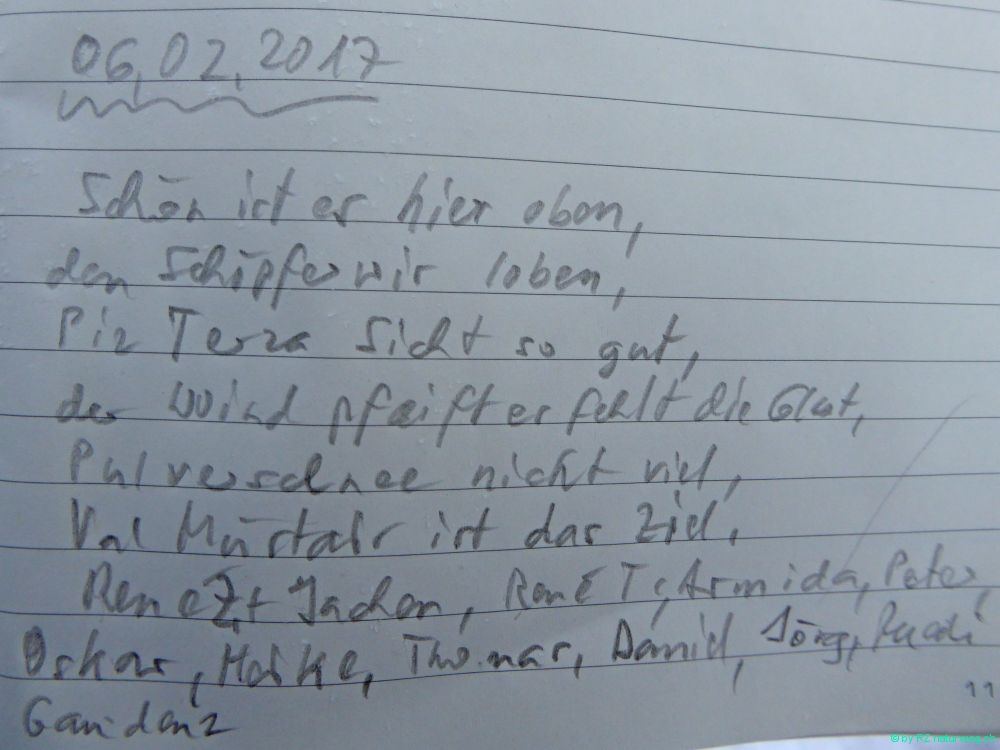 06.02.2017
Schön ist es hier oben,
den Schöpfer wir loben,
Piz Terza Sicht so gut,
der Wind pfeift es fehlt die Glut,
Pulverschnee nicht viel,
Val Müstair ist das Ziel.
René Z, + Jachen, René T, Armida, Peter,
Oskar, Heike, Thomas, Daniel, Jörg, Ruedi
Gaudenz
11
© by RZ